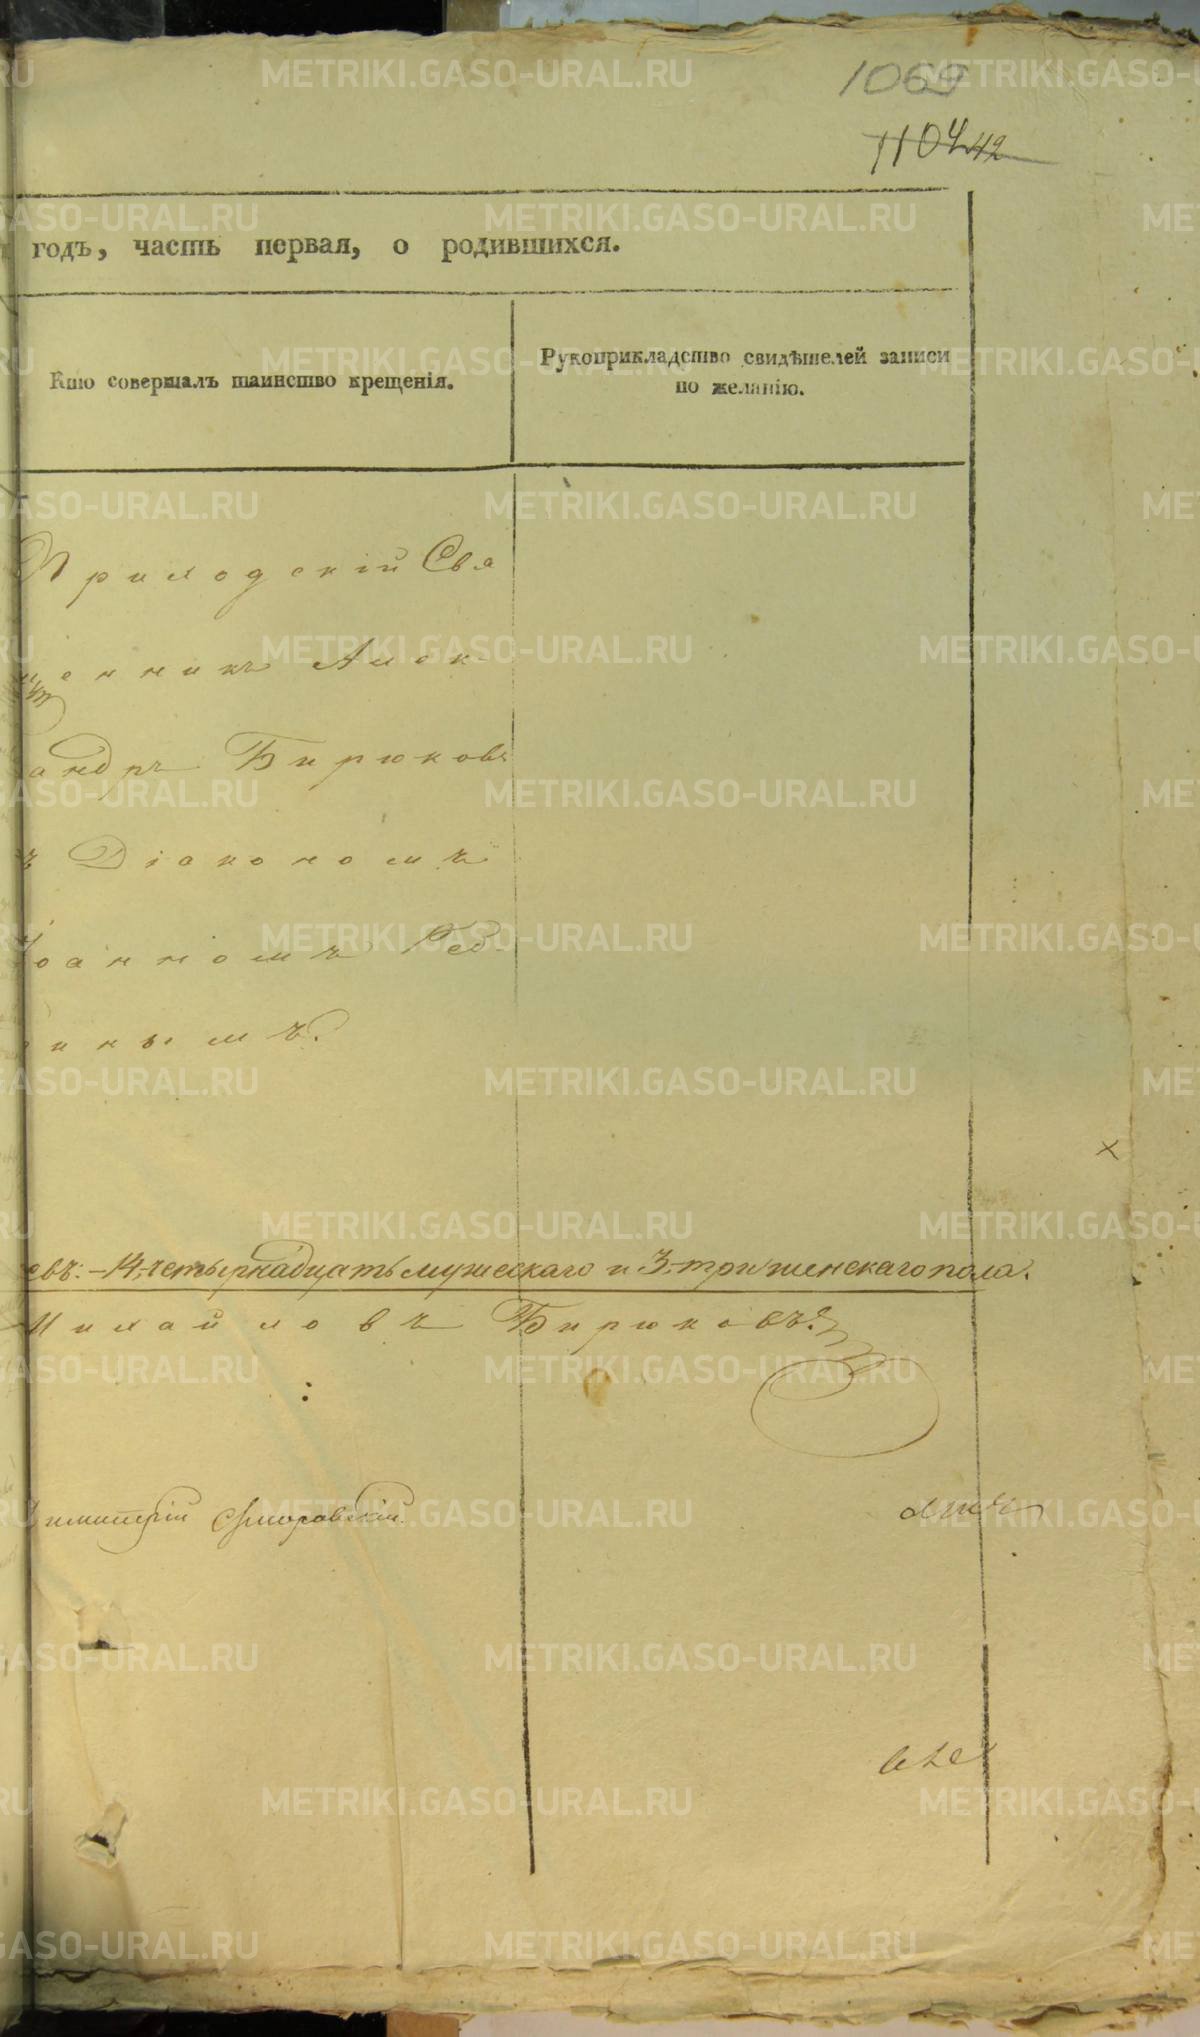 1069
1104 42
годъ, часть первая, о родившихся.
Кто совершалъ таинство крещенія.
Рукоприкладство свидѣтелей записи
по желанію.
Приходскій Свя
щенникъ Алек-
андръ Бирюковъ
ъ Діакономъ
Іоанномъ Ред-
инымъ.
евъ: -14, четырнадцать мужескаго и 3, три женскаго пола.
Михайловъ Бирюковъ
Димитрій
METRIKI.GASO-URAL.RU